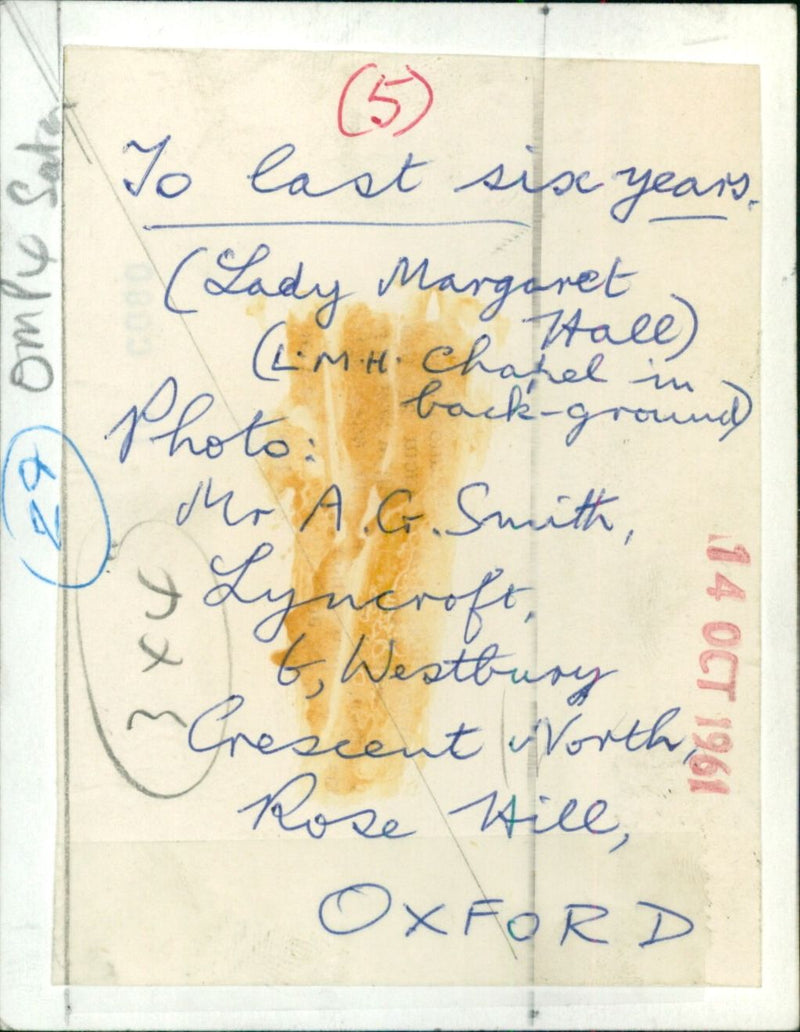 (5)
To last six years.
(Lady Margaret
Hall)
(L.M.H. Chapel in
back-ground)
Photo:
Mr A.G. Smith,
Lyncroft,
6, Westbury
Crescent North,
Rose Hill,
OXFORD
14 OCT 1961
3x4